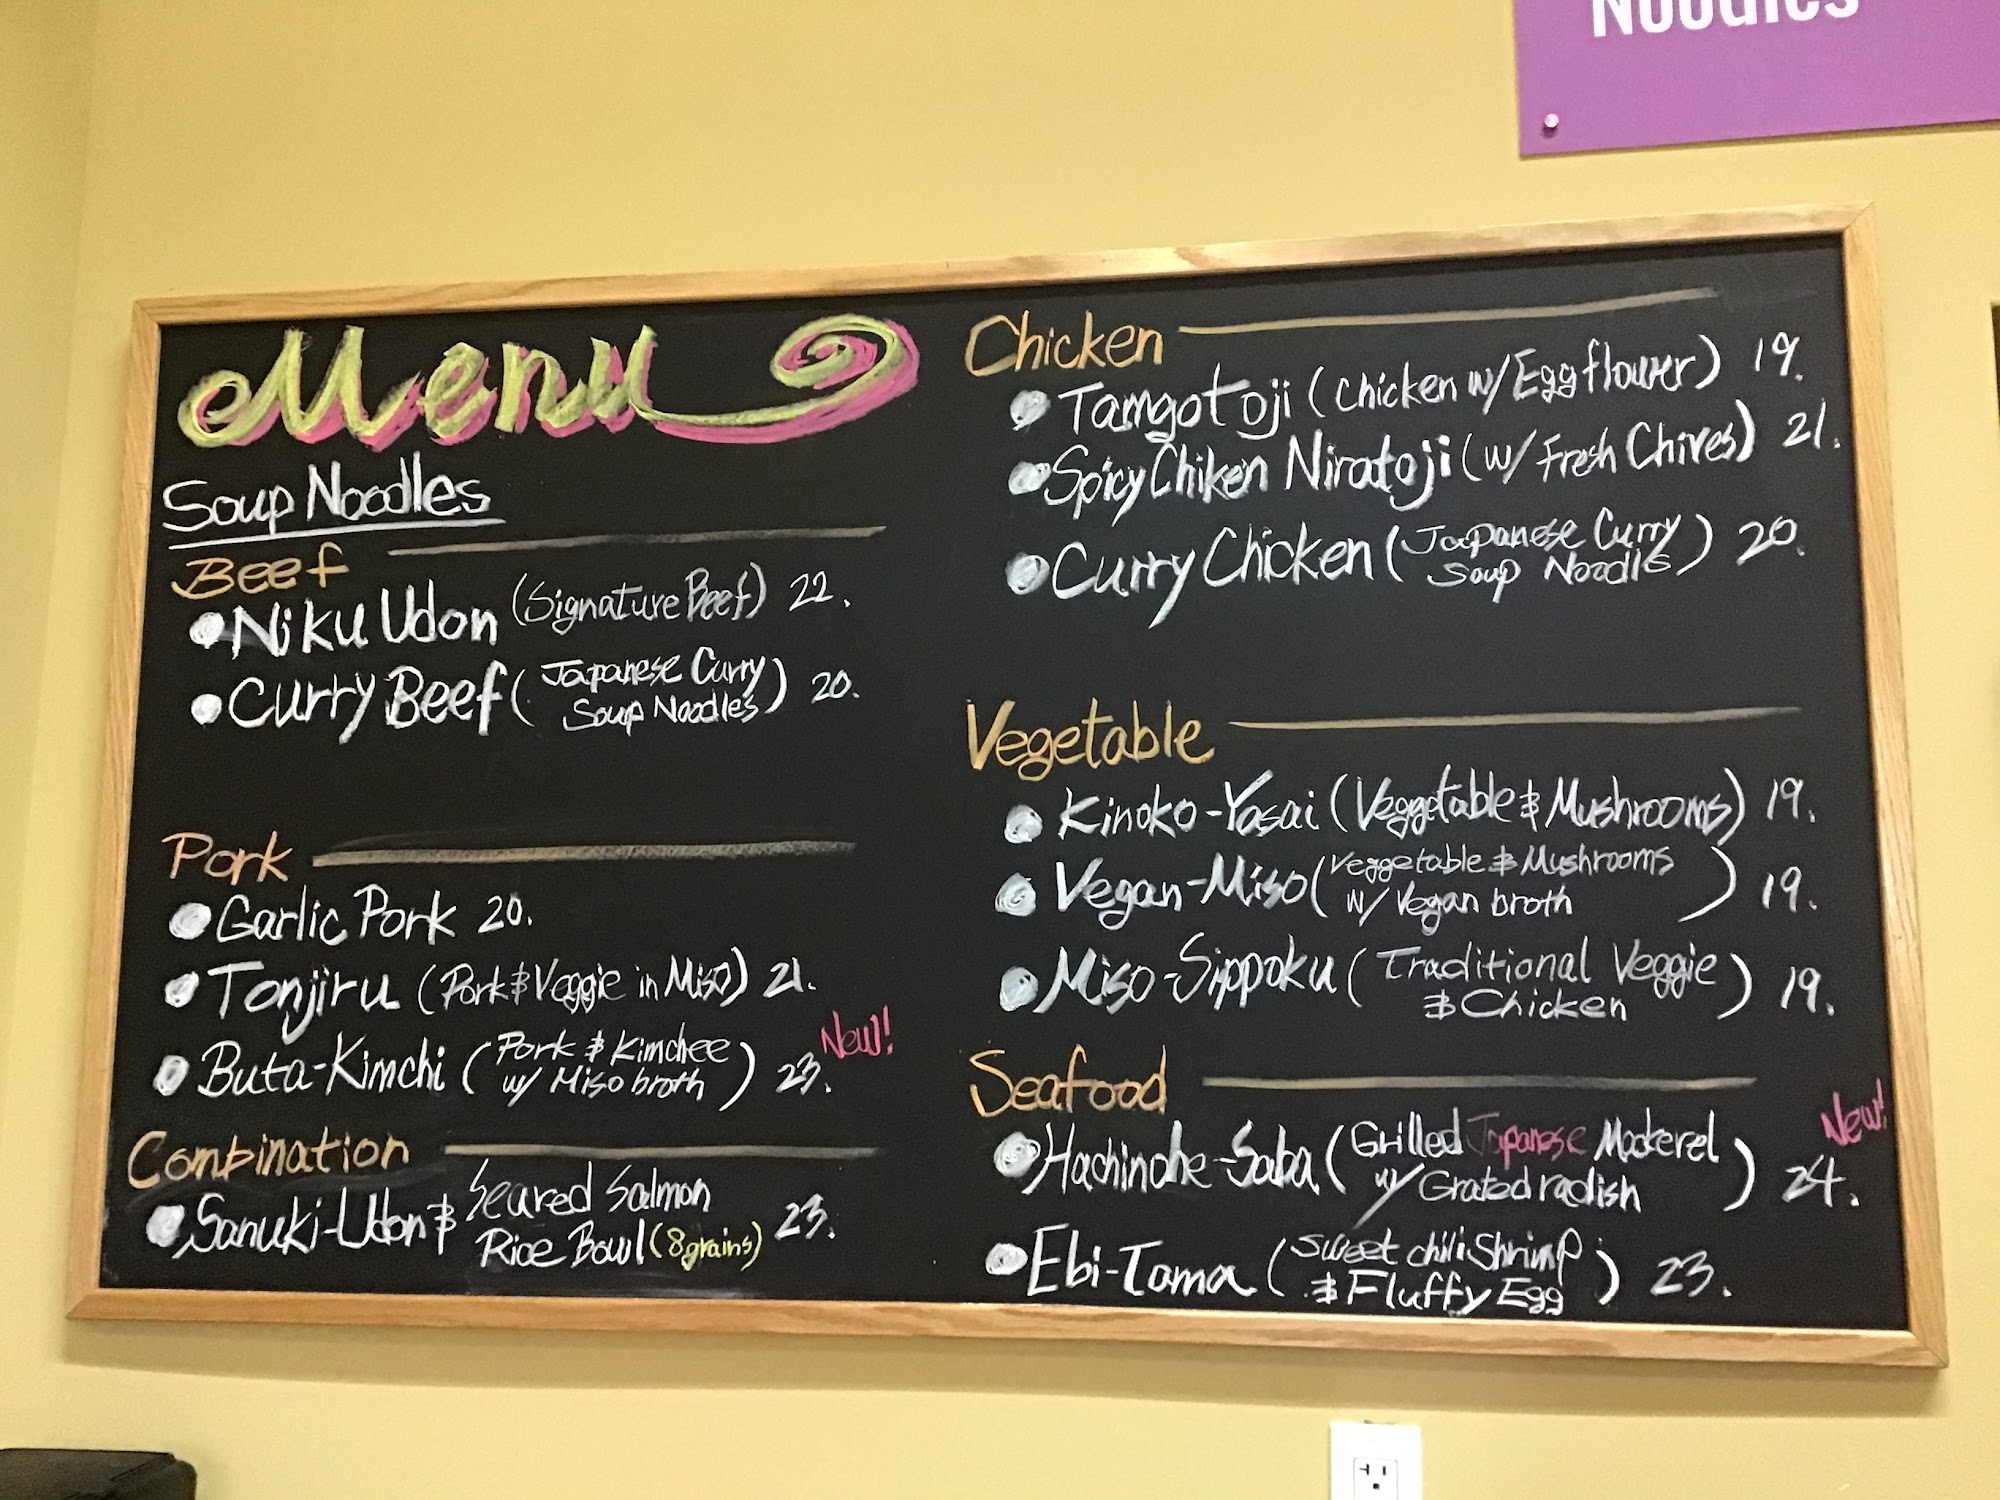 Noodles
Menu
Soup Noodles
Beef
Niku Udon (Signature Beef) 22.
Curry Beef (Japanese Curry
Soup Noodles) 20.
Pork
Garlic Pork 20.
Tonjiru (Pork & Veggie in Miso) 21.
Buta-Kimchi (Pork & Kimchee
w/ Miso broth) 23. New!
Combination
Sanuki-Udon & Seared Salmon
Rice Bowl (8grains) 23.
Chicken
Tamgotoji (Chicken w/ Egg flower) 19.
Spicy Chiken Niratoji (w/ Fresh Chives) 21.
Curry Chicken (Japanese Curry
Soup Noodle) 20.
Vegetable
Kinoko-Yasai (Veggetable & Mushrooms) 19.
Vegan-Miso (Veggetable & Mushrooms
w/ Vegan broth) 19.
Miso-Sippoku (Traditional Veggie
& Chicken) 19.
Seafood
Hachinohe-Saba (Grilled Japanese Mackerel
w/ Grated radish) 24. New!
Ebi-Tama (Sweet chili Shrimp
& Fluffy Egg) 23.